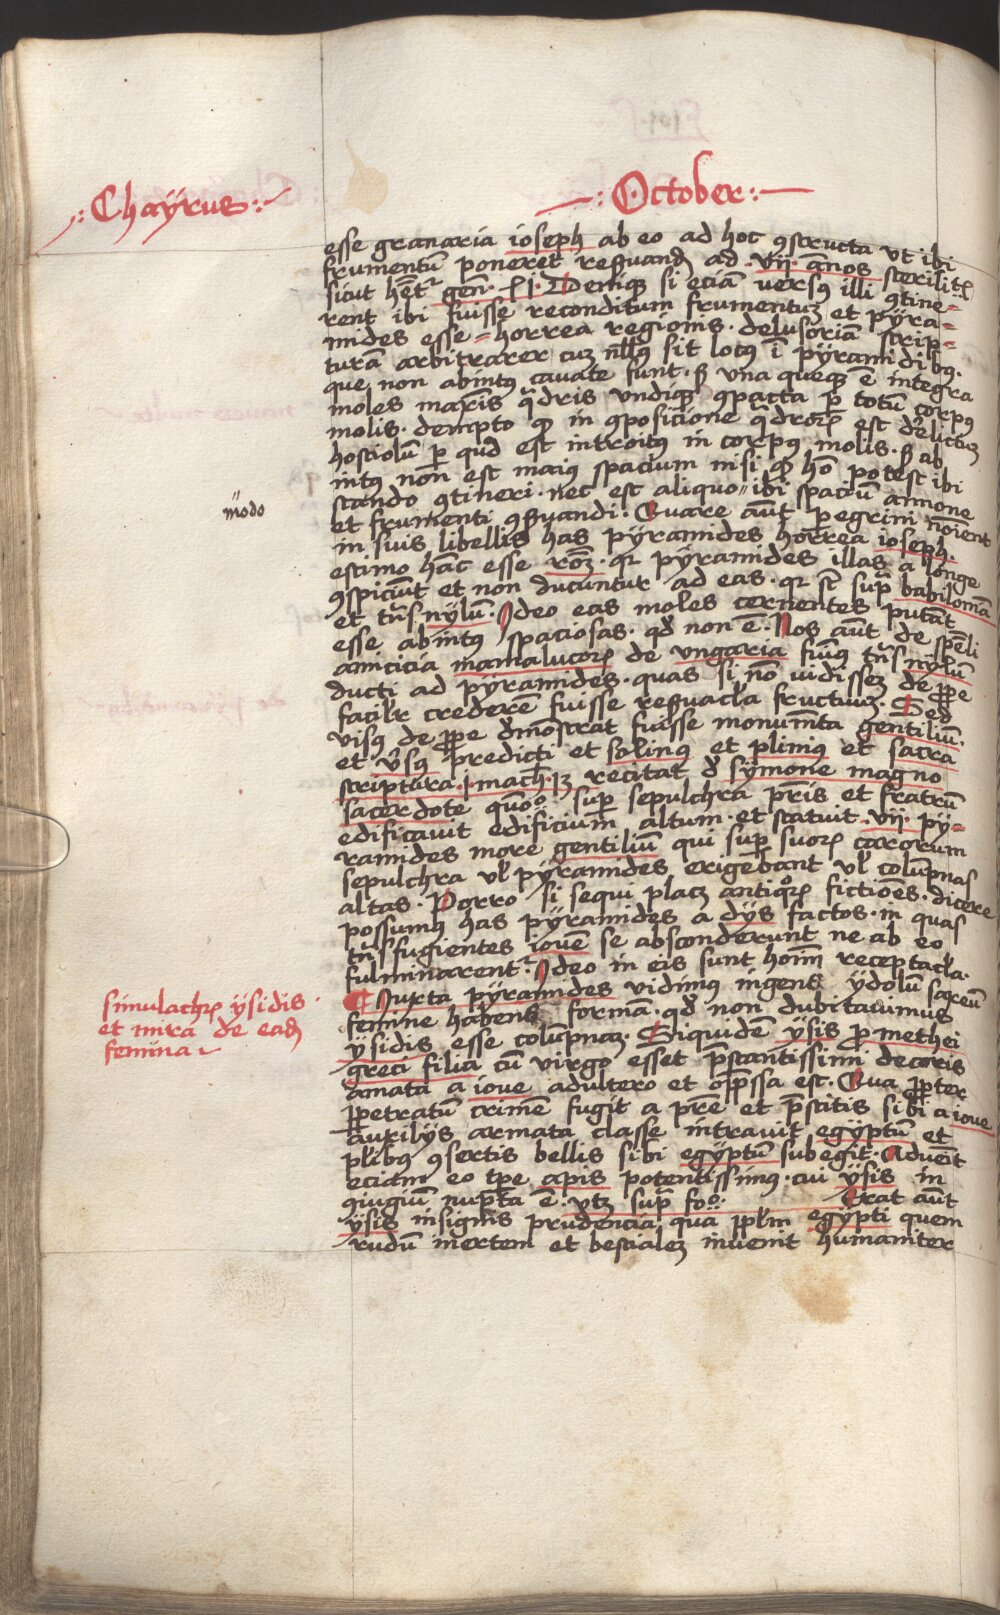 .: Chaÿrus :.
.: October :.
esse granaria ioseph ab eo ad hoc ꝯstructa vt ibi
frumentū poneret reſeruand ad .vij. ānos sterilitꝭ
sicut hēt᷑ gen̄. xlj. Deniqꝫ si eciā versꝰ illi ꝯtine=
rent ibi fuisse reconditum frumentum et pÿra=
mides esse = horrea regionis. delusoriā scrip=
turā arbitrarer cuꝫ nllꝰ sit locꝰ ī pÿramidibꝰ.
que non abintꝰ cauate sunt. ꝫ vna queqꝫ ē integra
moles maxīs q̄dris vndiqꝫ ꝯpacta ꝑ totū corpꝰ
molis. dempto ꝙ in ꝯposicione q̄droꝝ est derelictuꝫ
hostiolū ꝑ quod est introitꝰ in corpꝰ molis. ꝫ ab
intꝰ non est maiꝰ spacium nisi ꝙ hō potest ibi
stando ꝯtineri. nec est aliquo " ibi spaciū annone
"modo
et frumenti ꝯseruandi. Quare aūt peregrini nōīent
in suis libellis has pÿramides horrea ioseph.
estimo hāc esse rōꝫ. qꝛ pÿramides illas a longe
ꝯspiciūt et non ducuntur ad eas. qꝛ st̄ supͣ babiloniā
et tn̄s nÿlū. Ideo eas moles cernentes putāt
esse abintꝰ spaciosas. qđ non ē. Nos aūt de spēli
amicicia mamalucoꝝ de vngaria fuimꝰ tn̄s nÿlū
ducti ad pÿramides. quas si nō vidissem de ꝓpe
facilr̄ credere fuisse reseruacl̄a fructuum. Sed
visꝰ de ꝓpe dmōstrat fuisse monumēta gentiliū.
et v̄sꝰ predicti et solinꝰ et plinius et sacra
scriptura. 1 mach. 13 recitat đ sÿmone magno
sacerdote quōo sup̄ sepulchra pr̄is et fratrū
edificauit edificiūm altum. et statuit .vij. pÿ=
ramides more gentiliū qui sup̄ suoꝝ carorum
sepulchra vl̄ pÿramides erigebant vl̄ colūpnas
altas. Porro si sequi placꝫ antiqͦꝝ fictiōes. dicere
possumꝰ has pÿramides a dÿs factos. in quas
tn̄sfugientes iouē se absconderunt ne ab eo
fulminarent᷑. Ideo in eis sunt hoīm receptacl̄a.
Iuxta pÿramides vidimus ingens ÿdolū saxeum
femine habens formā. qđ non dubitauimus
ÿsidis esse colūpnaꝫ. Siquidē ÿsis ꝓmethei
greci filia cū virgo esset pr̄stantissimi decoris
amata a ioue adultero et opp̄ssa est. Qua ꝓpter
ꝑpetratū crimē fugit a pr̄e et p̄stitis sibi a ioue
auxilÿs armata classe intrauit egÿptū et
pl̄ibus ꝯsertis bellis sibi egÿptū subegit. Adueīt
eciam eo tp̄e apis potentissimꝰ. cui ÿsis in
ꝯiugiū nupta ē. vtꝫ sup̄ fo. Erat aūt
ÿsis insignis prudencia qua ppl̄m egÿpti quem
rudū inertem et bestialeꝫ inuenit humaniter
simulachrꝝ ÿsidis
et mira de eadꝫ
femina